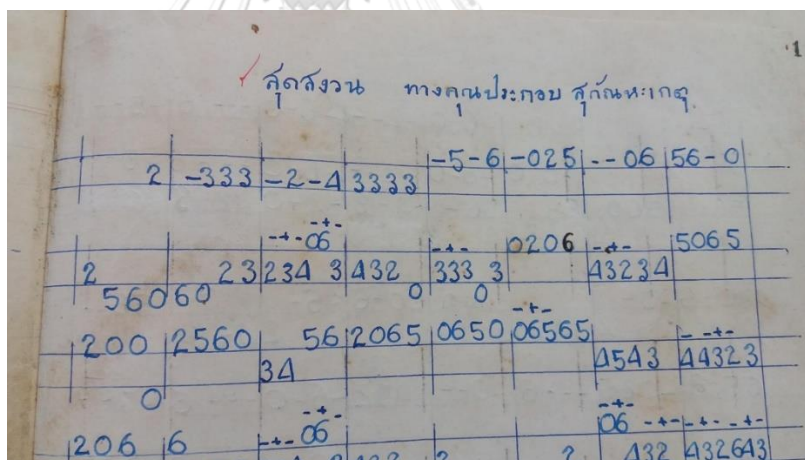 1
สุดสงวน ทางคุณประกอบ สุกัณหะเกตุ
2 -333 -2-4 3333 -5-6 -025 --06 56-0
-+-
-+-06 -+- 0206 -+- 5065
2 23 234 3 432 333 3 43234
56060 0 0
-+-
200 2560 56 2065 0650 06565 - -+-
34 4543 44323
0
-+- -+-
206 6 -+- 06 06 -+- -+- -+-
2 432 432643